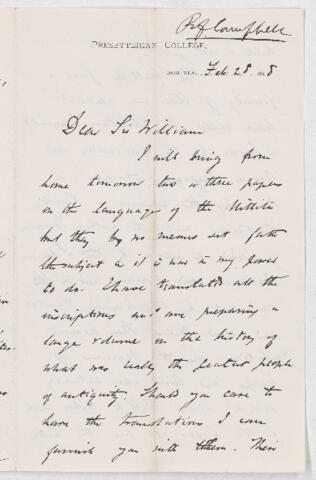 Prof Campbell
PRESBYTERIAN COLLEGE,
MONTREAL, Feb. 28 188
Dear Sir William
I will bring from
home tomorrow two or three papers
on the language of the Hittite
but they by no means set forth
the subject as it is now in my power
to do. I have translated all the
inscriptions and am preparing a
large volume on the history of
what was really the greatest people
of antiquity. Should you care to
have the translations I can
furnish you with them. Their